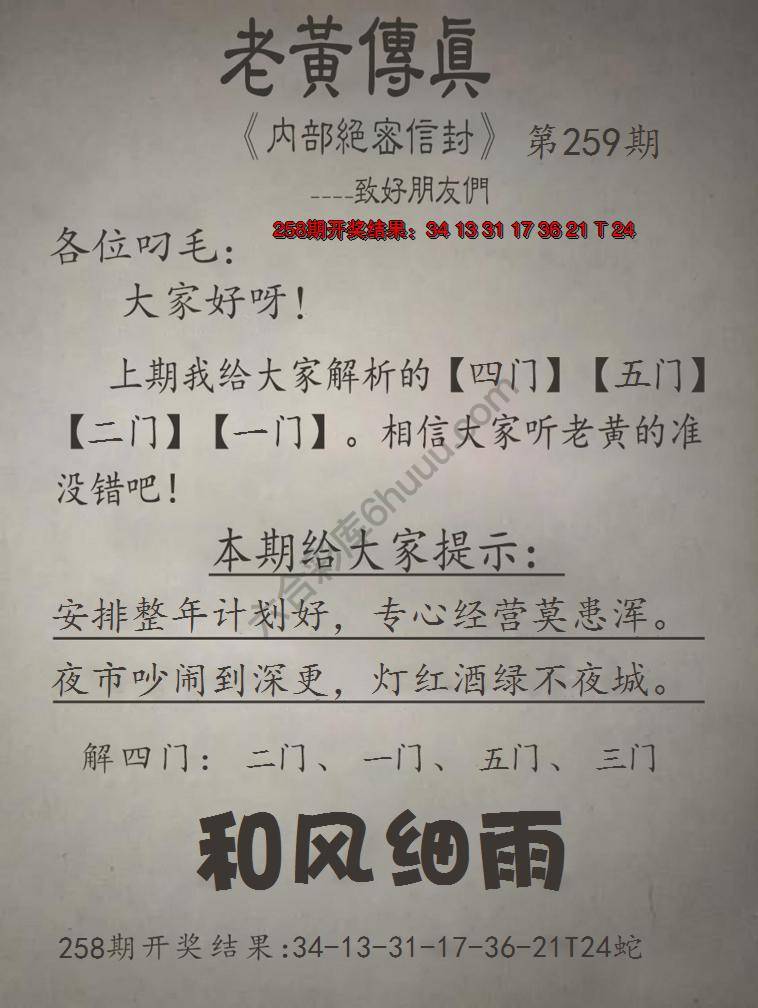 老黃傳眞
《内部絕密信封》 第259期
----致好朋友們
258期开奖结果：34 13 31 17 36 21 T 24
各位叼毛：
大家好呀！
上期我给大家解析的【四门】【五门】
【二门】【一门】。相信大家听老黄的准
没错吧！
本期给大家提示：
安排整年计划好，专心经营莫患浑。
夜市吵闹到深更，灯红酒绿不夜城。
解四门： 二门、 一门、 五门、 三门
和风细雨
258期开奖结果:34-13-31-17-36-21T24蛇
六合彩库6huuu.com